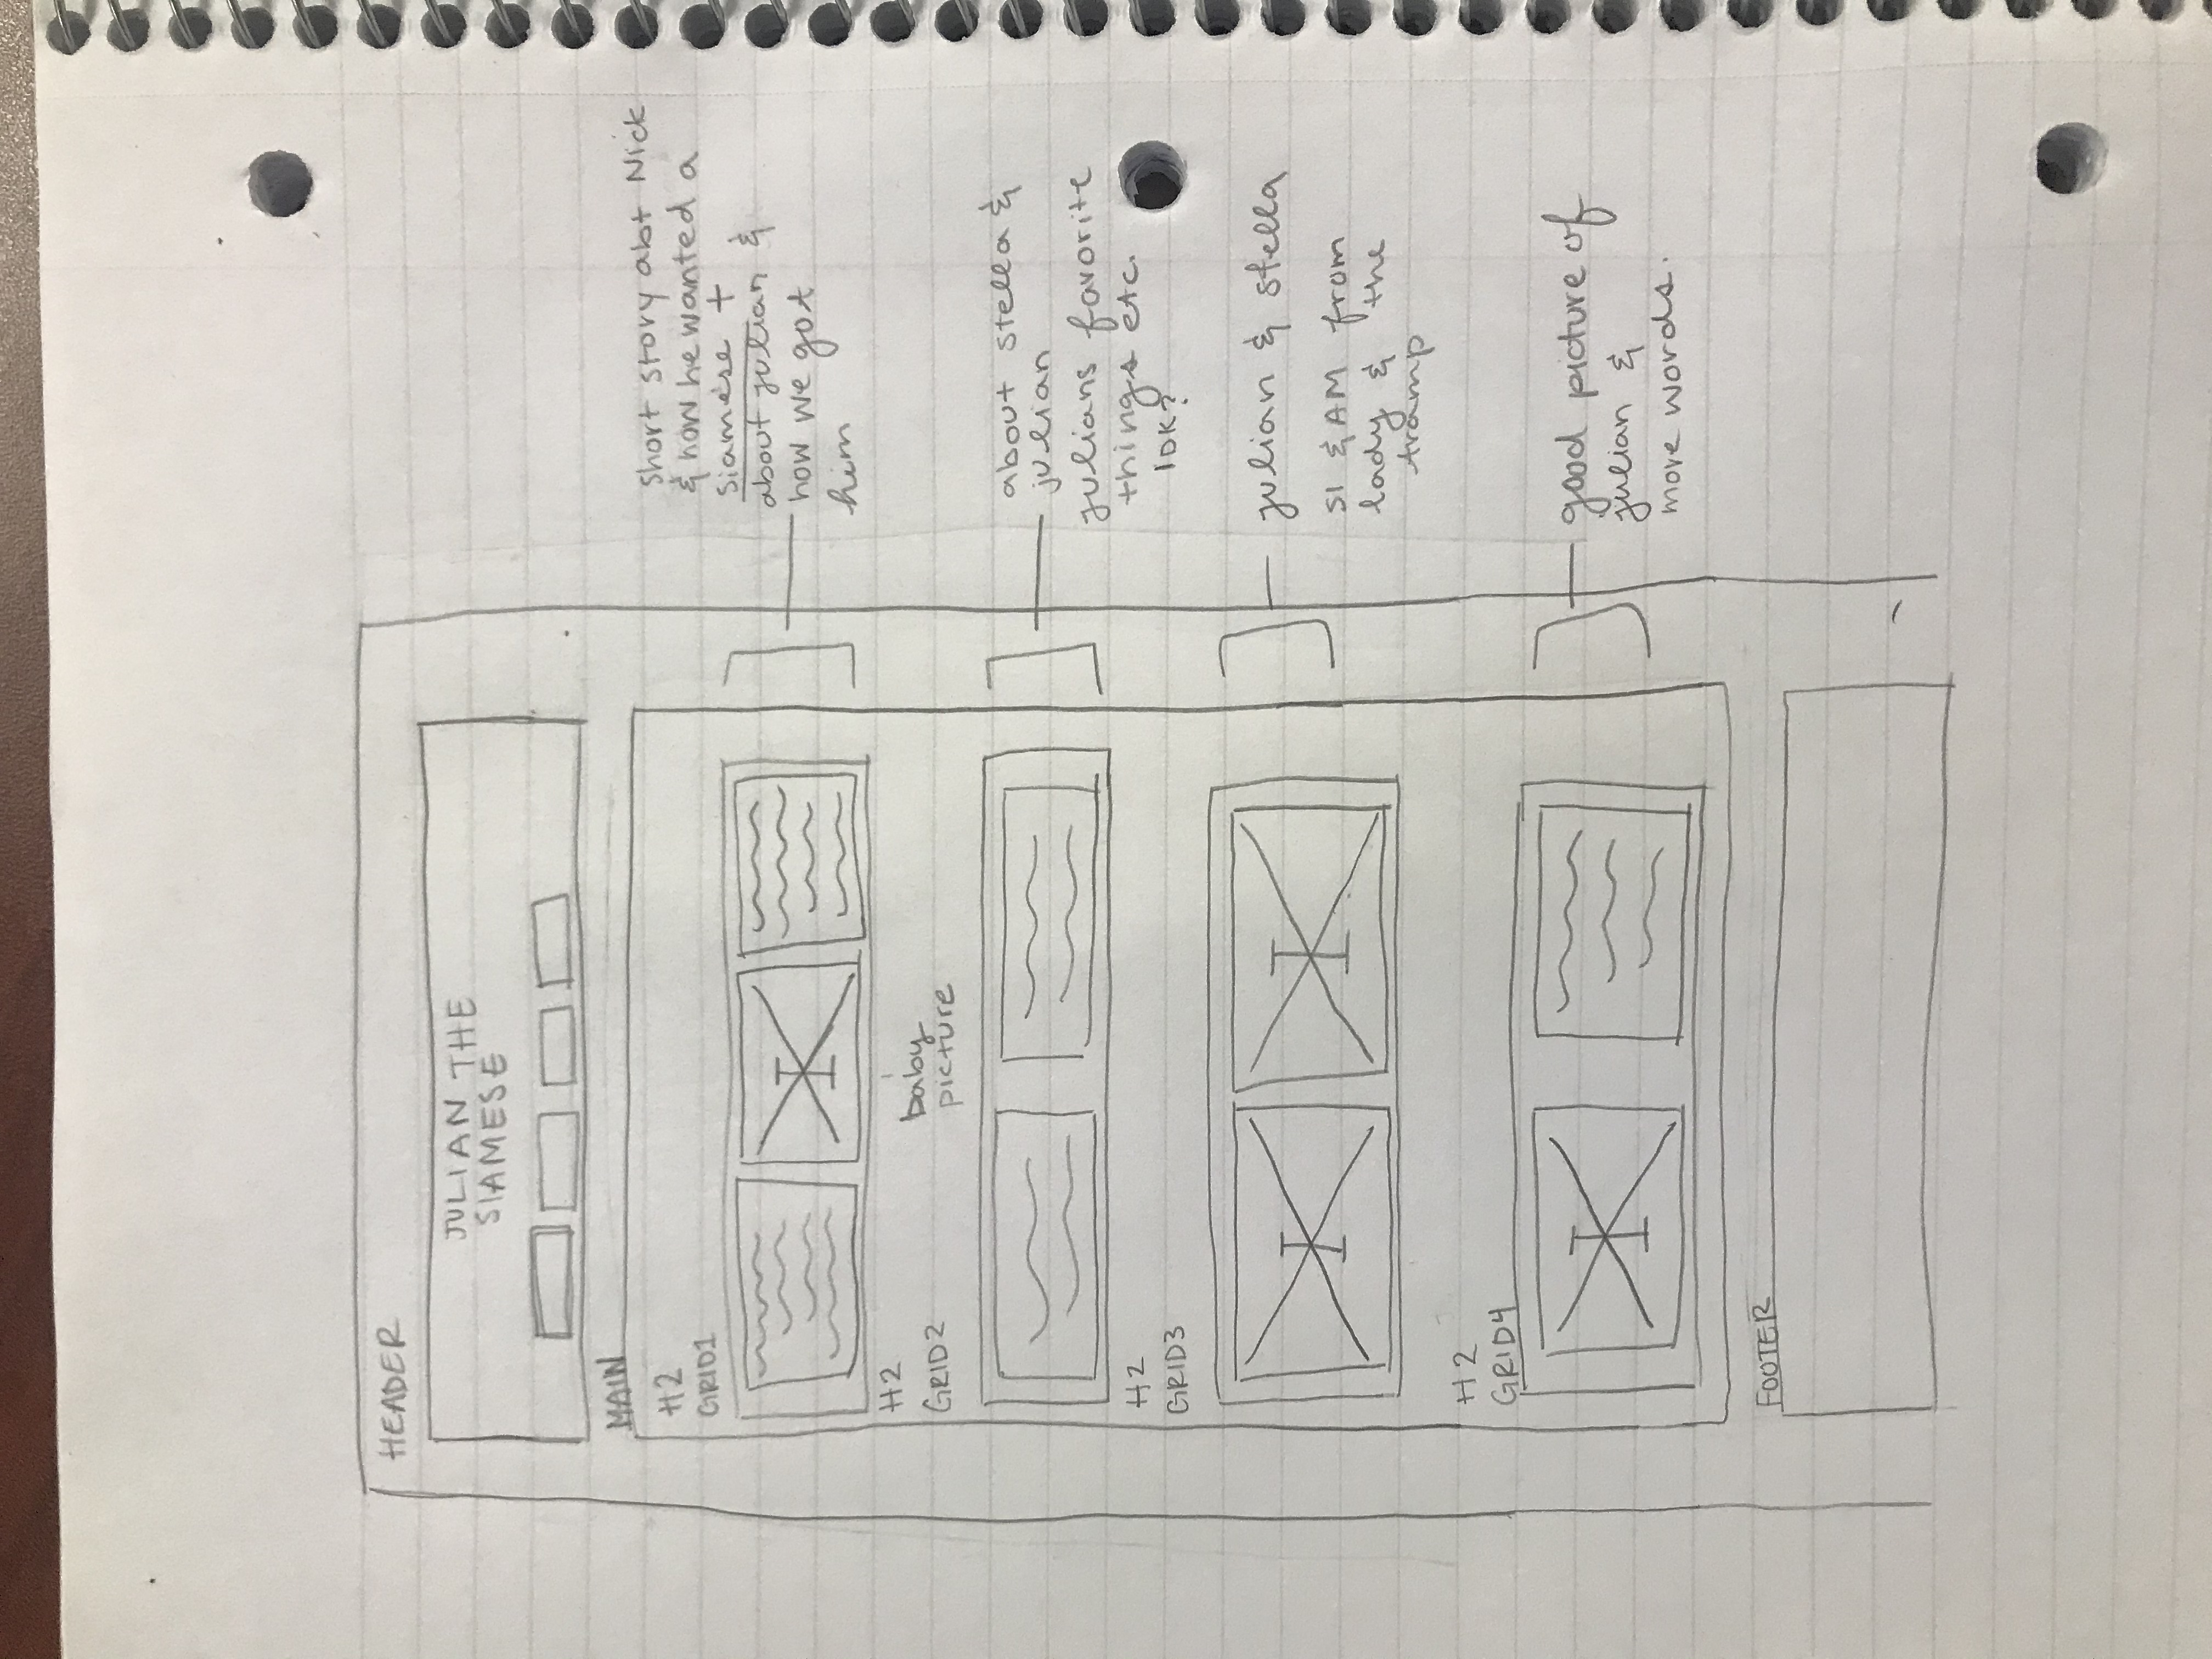 HEADER
JULIAN THE
SIAMESE
MAIN
H2
GRID1
short story abt Nick
& how he wanted a
siamese +
about julian &
how we got
him
H2
GRID2
baby
picture
about stella &
julian
julians favorite
things etc.
IDK?
H2
GRID3
julian & stella
SI & AM from
lady & the
tramp
H2
GRID4
good picture of
julian &
more words.
FOOTER